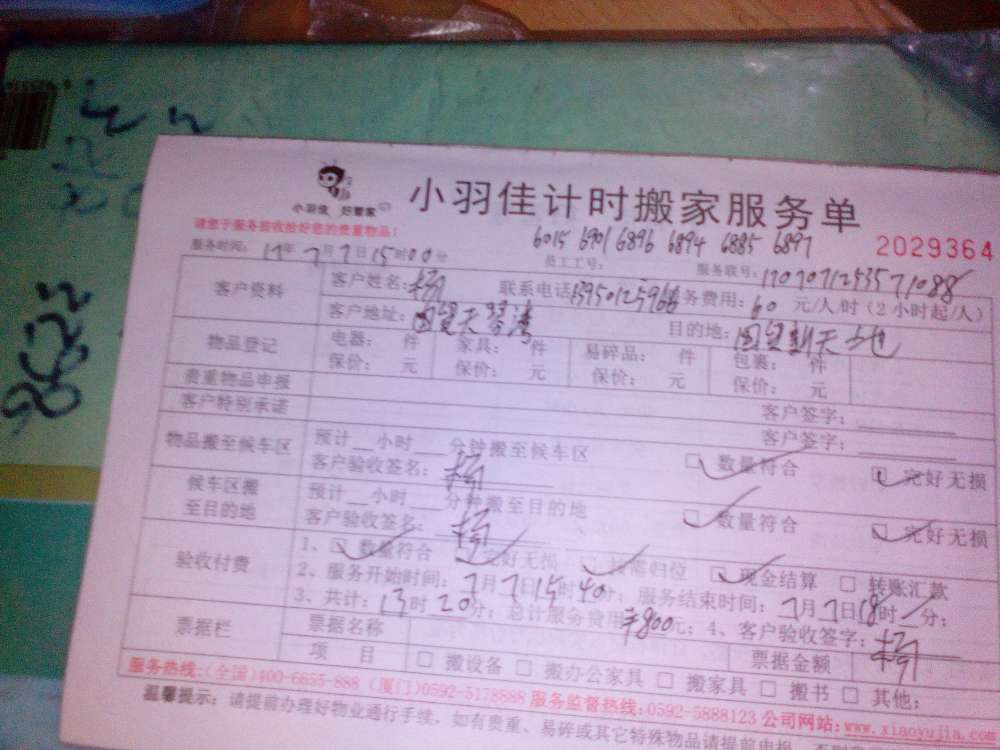 小羽佳 好管家
小羽佳计时搬家服务单
请您于服务验收放好您的贵重物品!
6015 6901 6896 6894 6885 6897
2029364
服务时间: 17年7月7日15时00分 员工工号: 服务联号:
客户资料 客户姓名:杨 联系电话 服务费用: 60 元/人/时(2小时起/人)
客户地址:国贸天琴湾 目的地:国贸新天地
物品登记 电器: 件 家具: 件 易碎品: 件 包裹: 件
保价: 元 保价: 元 保价: 元 保价: 元
贵重物品申报 客户签字:
客户特别承诺 客户签字:
物品搬至候车区 预计__小时__分钟搬至候车区 □数量符合 □完好无损
客户验收签名: 杨
候车区搬至目的地 预计__小时__分钟搬至目的地 □数量符合 □完好无损
客户验收签名: 杨
验收付费 1、□数量符合 □完好无损 □按需归位 □现金结算 □ 转账汇款
2、服务开始时间: 7月7日15时40分; 服务结束时间: 7月7日18时 分;
3、共计: 13时20分; 总计服务费用 ¥800元; 4、客户验收签字: 杨
票据栏 票据名称 票据金额
项 目 □ 搬设备 □ 搬办公家具 □ 搬家具 □ 搬书 □ 其他:
服务热线:(全国)400-6655-888 (厦门)0592-5178888 服务监督热线:0592-5888123 公司网站:www.xiaoyujia.com
温馨提示: 请提前办理好物业通行手续, 如有贵重、易碎或其它特殊物品请提前申报